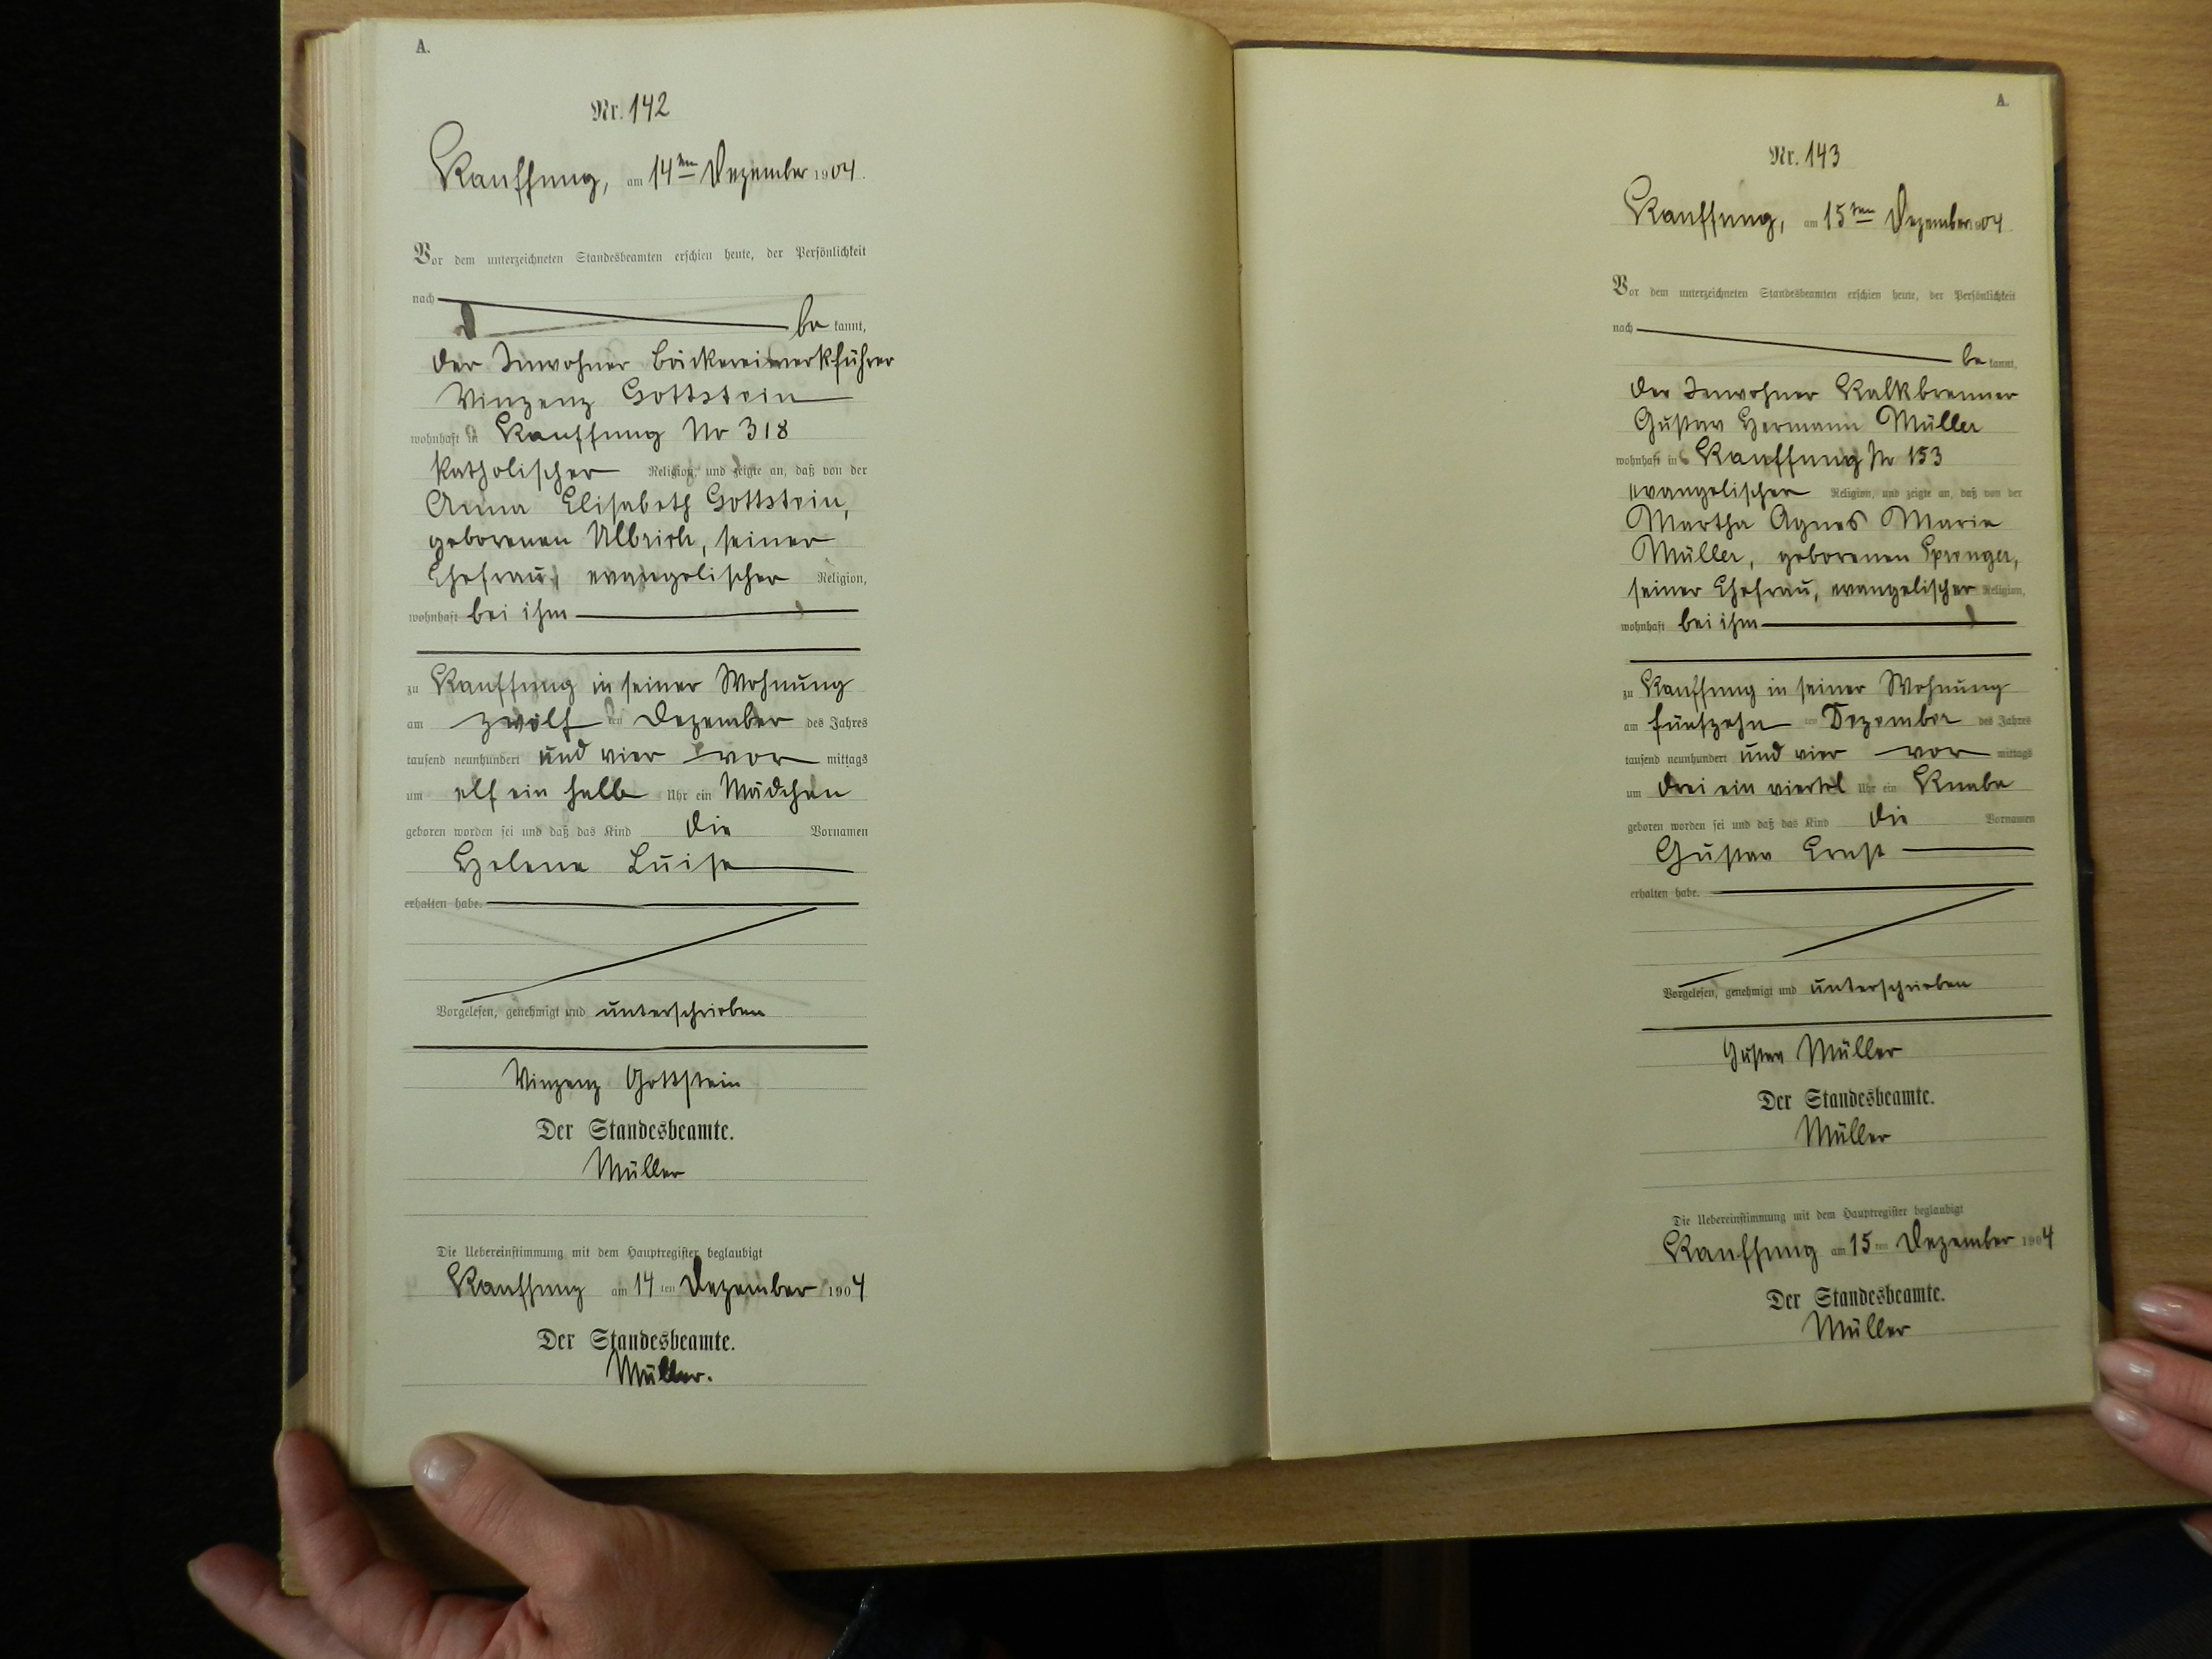 A.
Nr. 142
Kauffung, am 14ten Dezember 1904.
Vor dem unterzeichneten Standesbeamten erschien heute, der Persönlichkeit
nach
be kannt,
der Inwohner Bäckereiwerkführer
Vinzenz Gottstein
wohnhaft in Kauffung No 318
katholischer Religion, und zeigte an, daß von der
Anna Elisabeth Gottstein,
geborenen Ulbrich, seiner
Ehefrau, evangelischer Religion,
wohnhaft bei ihm
zu Kauffung in seiner Wohnung
am zwölf ten Dezember des Jahres
tausend neunhundert und vier vor mittags
um elf ein halb Uhr ein Mädchen
geboren worden sei und daß das Kind die Vornamen
Helene Luise
erhalten habe.
Vorgelesen, genehmigt und unterschrieben
Vinzenz Gottstein
Der Standesbeamte.
Müller
Die Uebereinstimmung mit dem Hauptregister beglaubigt
Kauffung am 14 ten Dezember 1904
Der Standesbeamte.
Müller.
A.
Nr. 143
Kauffung, am 15ten Dezember 1904.
Vor dem unterzeichneten Standesbeamten erschien heute, der Persönlichkeit
nach
be kannt,
der Inwohner Kalkbrenner
Gustav Hermann Müller
wohnhaft in Kauffung No 153
evangelischer Religion, und zeigte an, daß von der
Martha Agnes Marie
Müller, geborenen Sprenger,
seiner Ehefrau, evangelischer Religion,
wohnhaft bei ihm
zu Kauffung in seiner Wohnung
am fünfzehn ten Dezember des Jahres
tausend neunhundert und vier vor mittags
um drei ein viertel Uhr ein Knabe
geboren worden sei und daß das Kind die Vornamen
Gustav Ernst
erhalten habe.
Vorgelesen, genehmigt und unterschrieben
Gustav Müller
Der Standesbeamte.
Müller
Die Uebereinstimmung mit dem Hauptregister beglaubigt
Kauffung am 15 ten Dezember 1904
Der Standesbeamte.
Müller